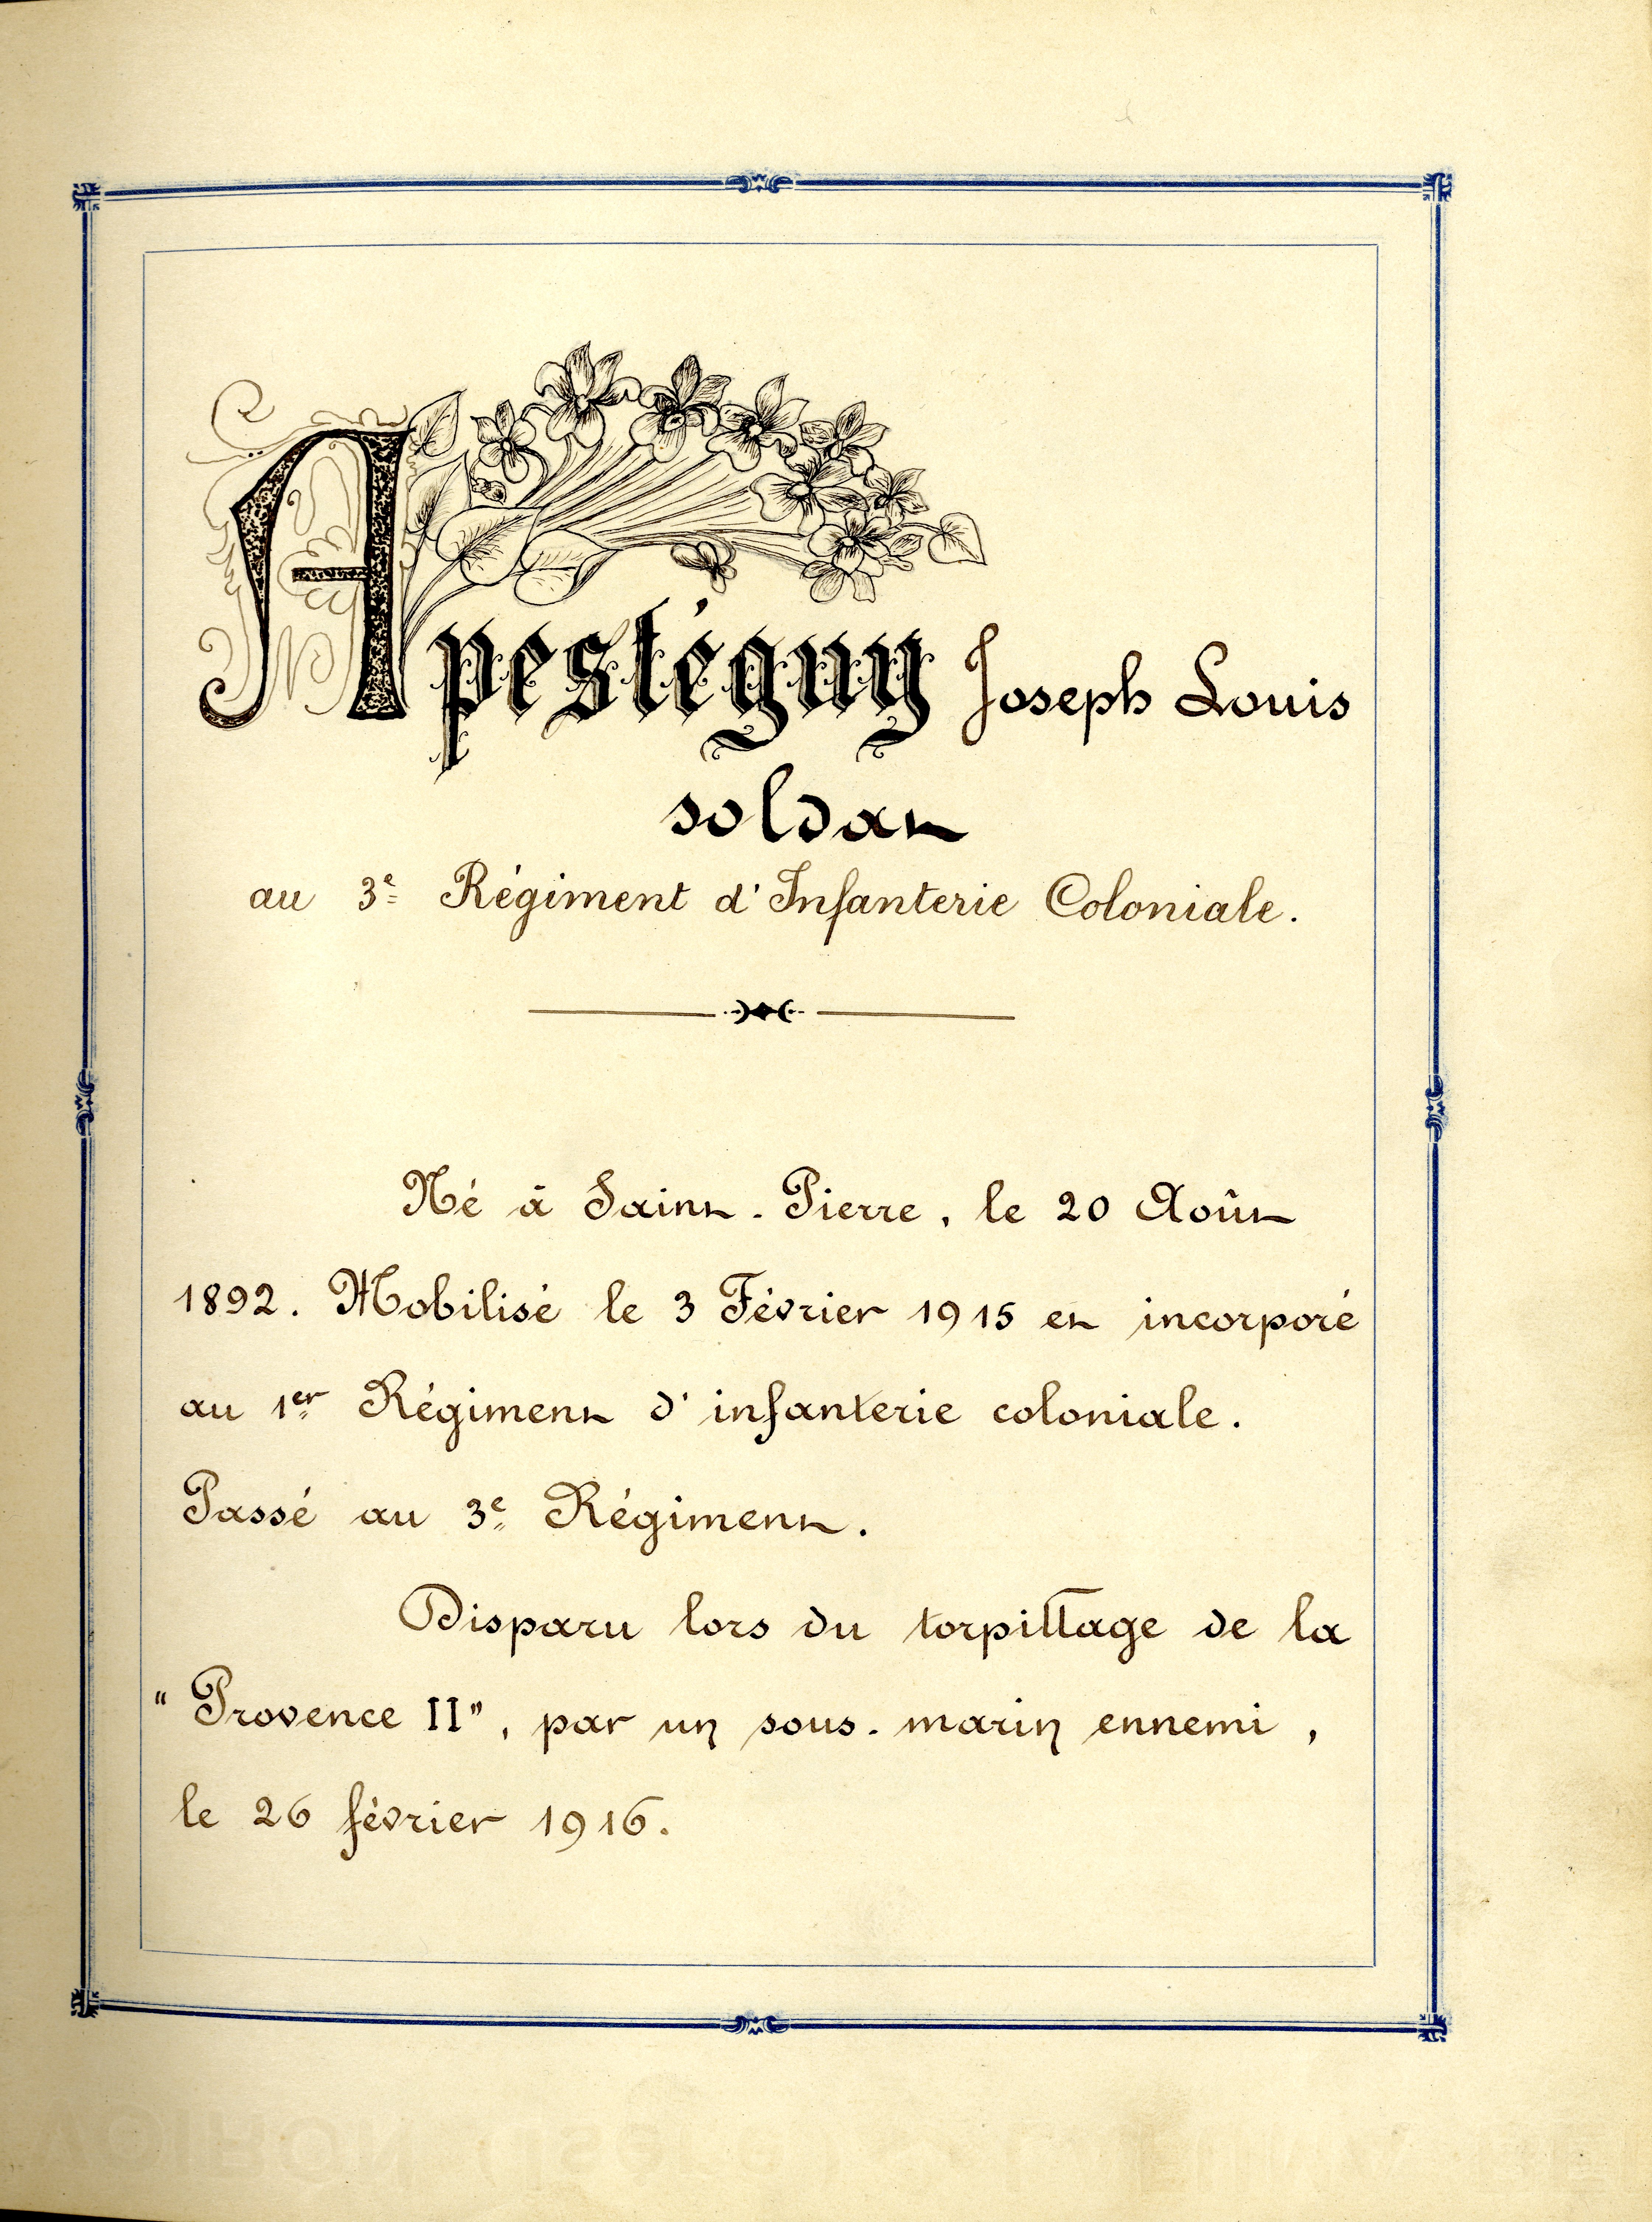 Apestéguy Joseph Louis
soldat
au 3e Régiment d'Infanterie Coloniale.
Né à Saint-Pierre, le 20 Août
1892. Mobilisé le 3 Février 1915 et incorporé
au 1er Régiment d'infanterie coloniale.
Passé au 3e Régiment.
Disparu lors du torpillage de la
"Provence II", par un sous-marin ennemi,
le 26 février 1916.